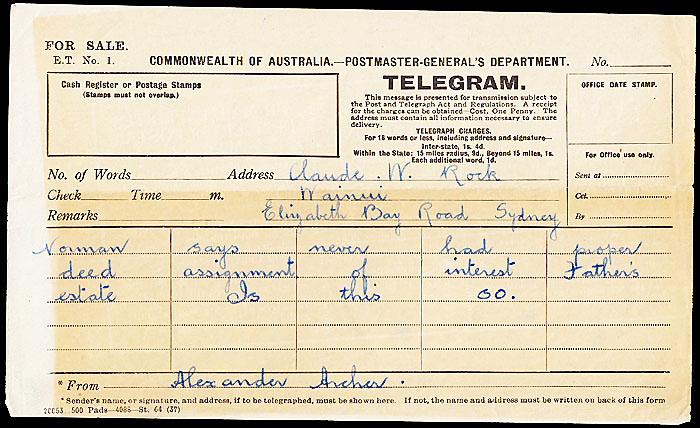 FOR SALE.
E.T. No. 1. COMMONWEALTH OF AUSTRALIA.—POSTMASTER-GENERAL'S DEPARTMENT. No.
Cash Register or Postage Stamps
(Stamps must not overlap.)
TELEGRAM.
This message is presented for transmission subject to
the Post and Telegraph Act and Regulations. A receipt
for the charges can be obtained—Cost, One Penny. The
address must contain all information necessary to ensure
delivery.
TELEGRAPH CHARGES.
For 16 words or less, including address and signature—
Inter-state, 1s. 4d.
Within the State: 15 miles radius, 9d., Beyond 15 miles, 1s.
Each additional word, 1d.
OFFICE DATE STAMP.
For Office use only.
No. of Words Address Claude . W. Rock
Sent at
Check Time m. Wainui
Cct.
Remarks Elizabeth Bay Road Sydney
By
Norman says never had proper
deed assignment of interest Father's
estate Is this so.
* From Alexander Archer .
* Sender's name, or signature, and address, if to be telegraphed, must be shown here. If not, the name and address must be written on back of this form
20053 500 Pads—4088—St. 64 (37)